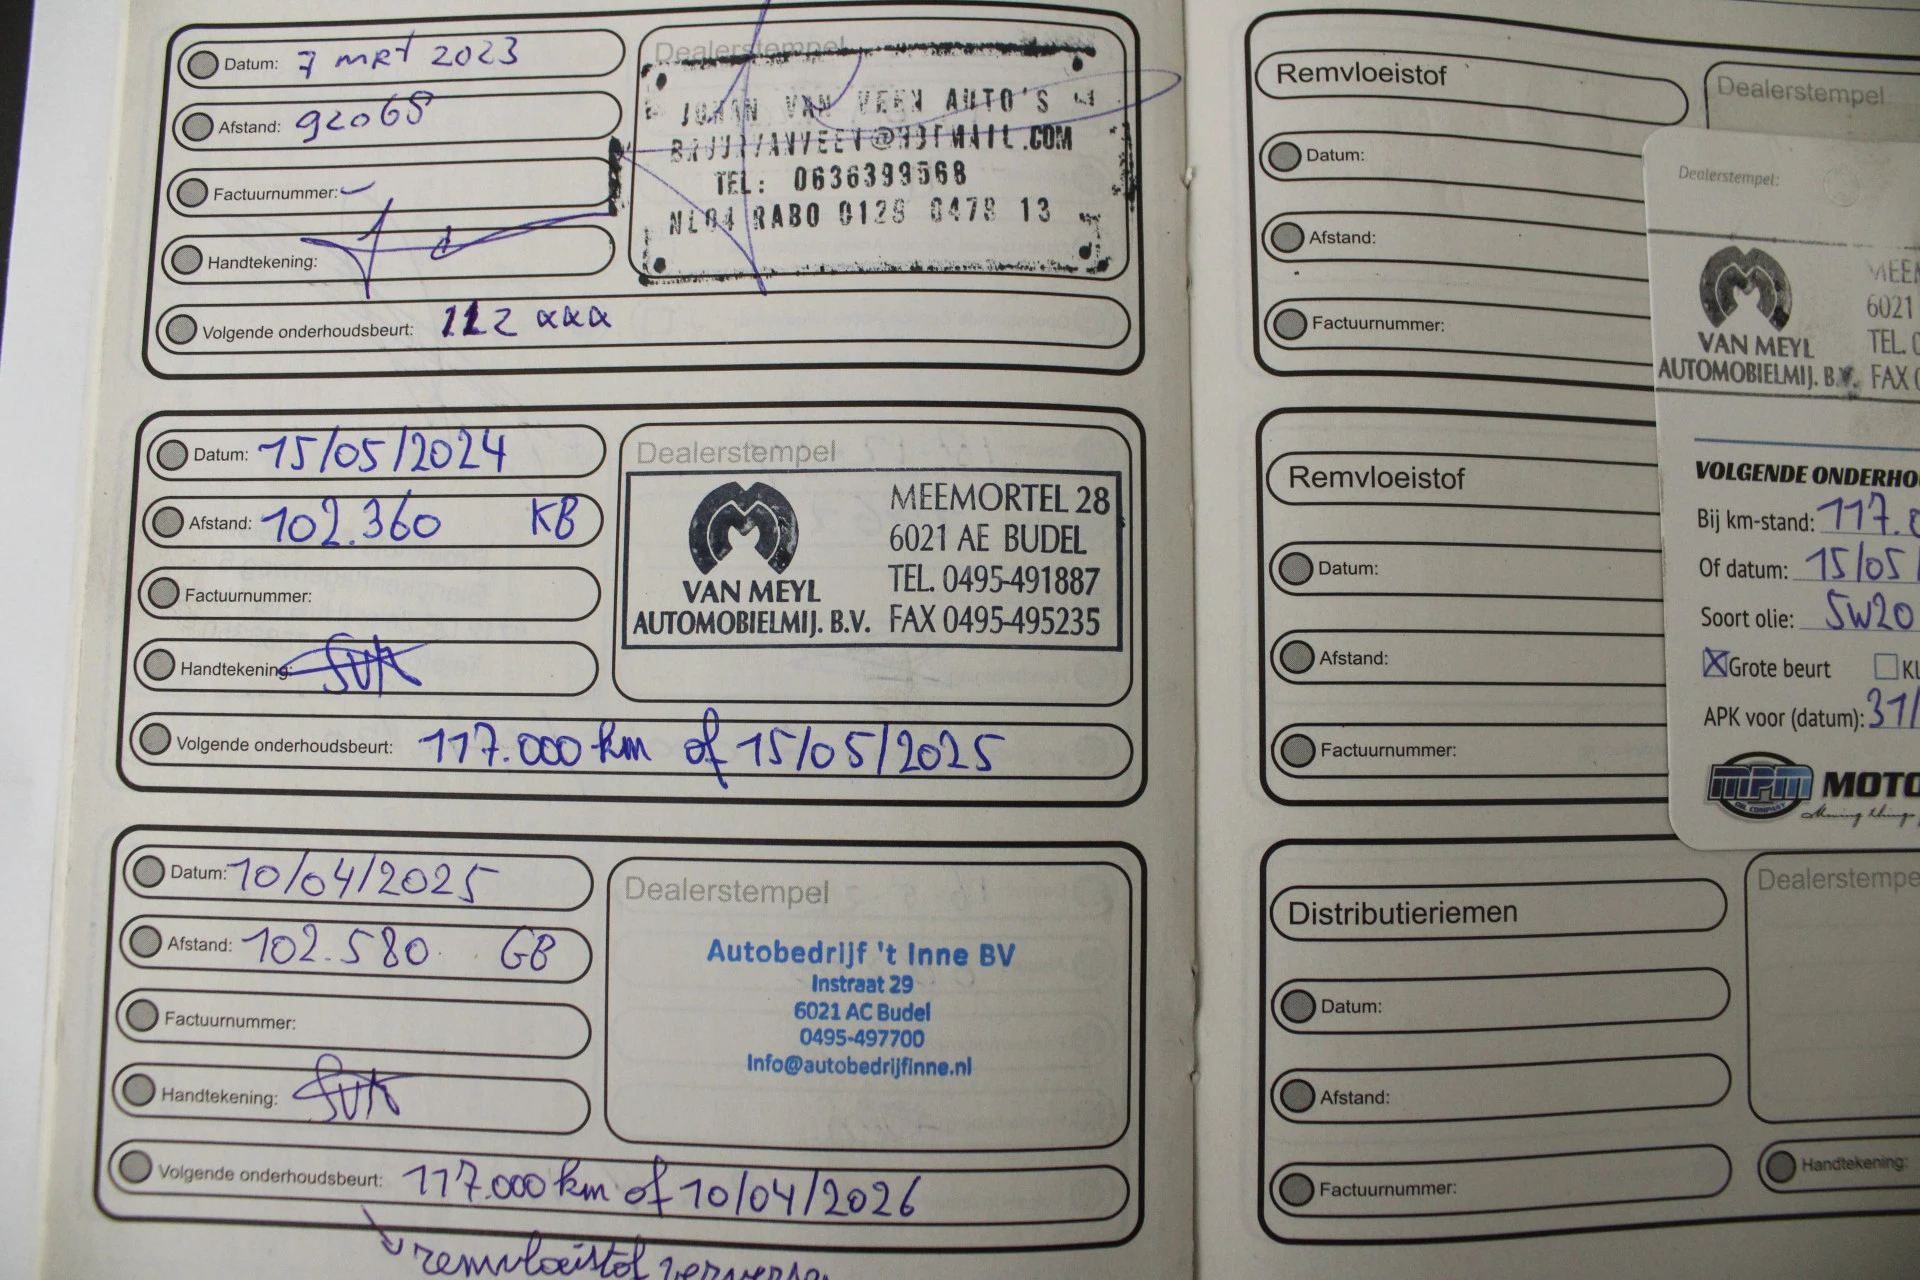 Datum: 7 mrt 2023
Afstand: 92068
Factuurnummer: -
Handtekening:
Volgende onderhoudsbeurt: 112 xxx
Dealerstempel
JOHAN VAN VEEN AUTO'S
TEL: 0636399568
NL04 RABO 0128 0478 13
Datum: 15/05/2024
Afstand: 102.360 KB
Factuurnummer:
Handtekening:
Volgende onderhoudsbeurt: 117.000 km of 15/05/2025
Dealerstempel
VAN MEYL
AUTOMOBIELMIJ. B.V.
MEEMORTEL 28
6021 AE BUDEL
TEL. 0495-491887
FAX 0495-495235
Datum: 10/04/2025
Afstand: 102.580 GB
Factuurnummer:
Handtekening:
Volgende onderhoudsbeurt: 117.000 km of 10/04/2026
remvloeistof
Dealerstempel
Autobedrijf 't Inne BV
Instraat 29
6021 AC Budel
0495-497700
Info@autobedrijfinne.nl
Remvloeistof
Datum:
Afstand:
Factuurnummer:
Dealerstempel
Remvloeistof
Datum:
Afstand:
Factuurnummer:
Distributieriemen
Datum:
Afstand:
Factuurnummer:
Dealerstempe
Handtekening:
Dealerstempel:
VAN MEYL
AUTOMOBIELMIJ. B.V.
MEEM
6021
TEL. 0
FAX 0
VOLGENDE ONDERHO
Bij km-stand: 117.0
Of datum: 15/05/
Soort olie: 5W20
Grote beurt
KL
APK voor (datum): 31/
MPM
OIL COMPANY
MOTO
Moving things